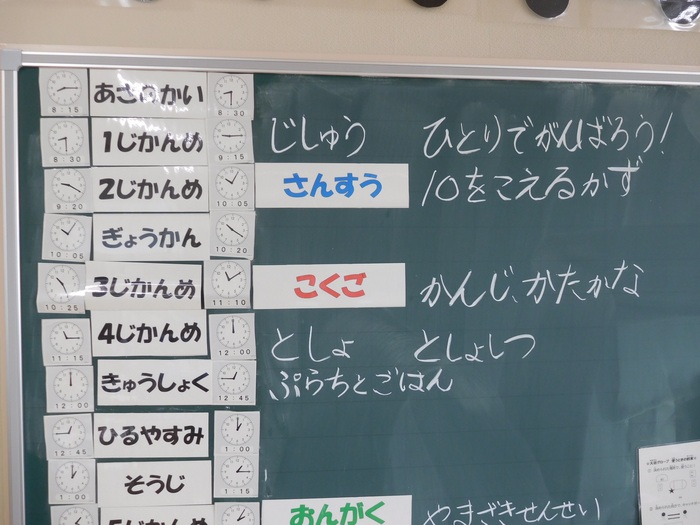 8:15 あさのかい 8:30
8:30 1じかんめ 9:15 じしゅう ひとりでがんばろう!
9:20 2じかんめ 10:05 さんすう 10をこえるかず
10:05 ぎょうかん 10:20
10:25 3じかんめ 11:10 こくご かんじ、かたかな
11:15 4じかんめ 12:00 としょ としょしつ
12:00 きゅうしょく 12:45 ぷらちとごはん
12:45 ひるやすみ 1:00
1:00 そうじ 1:15
5じかんめ おんがく やまざきせんせい